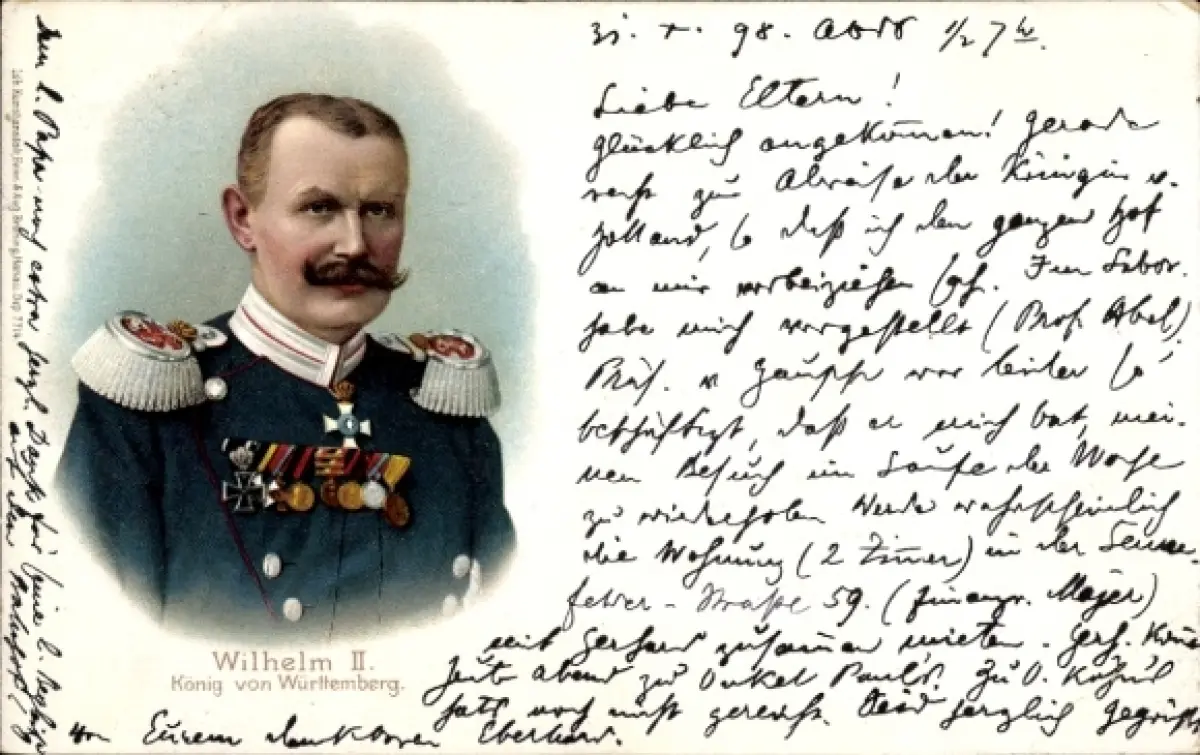 31. X. 98. Abds 1/2 7 h.
Liebe Eltern!
Glücklich angekommen! Gerade
recht zur Abreise der Königin v.
Holland, so daß ich den ganzen Hof
an mir vorbeiziehen sah. Im Labor.
habe mich vorgestellt (Prof. Abel)
Präs. v. Gaupp war leider so
beschäftigt, daß er mich bat, mei-
nen Besuch im Laufe der Woche
zu wiederholen. Werde wahrscheinlich
die Wohnung (2 Zimmer) in der
Straße 59. (Finanzr. Majer)
mit Gerhard zusammen mieten. Gerh.
heute abend zu Onkel Paul's. Zu O.
hats noch nicht gereicht. Seid herzlich gegrüßt
von Eurem dankbaren Eberhard.
Dem l. Papa noch extra herzl. Dank für seine l. Begleitg
auf den Bahnhof!
Wilhelm II.
König von Württemberg.